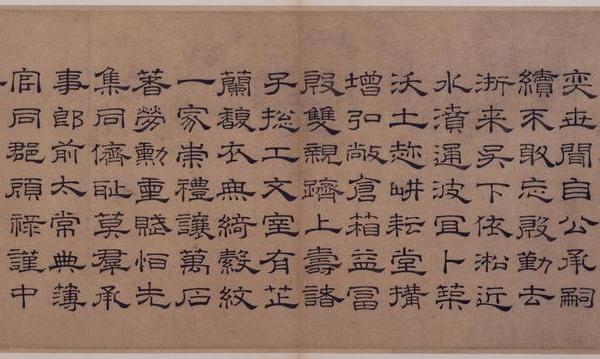 奕世間自公承嗣
續不敢忘殷勤去
浙来吳下依淞近
水濆通波冝卜築
沃土趂畊耘堂搆
增弘敞倉箱益冨
殷雙親躋上壽諸
子捴工文室有芷
蘭馥衣無綺縠紋
一家崇禮讓萬石
著勞勳重賦恒先
集同儕耻莫羣承
事郎前太常典簿
官同郡顧祿謹中